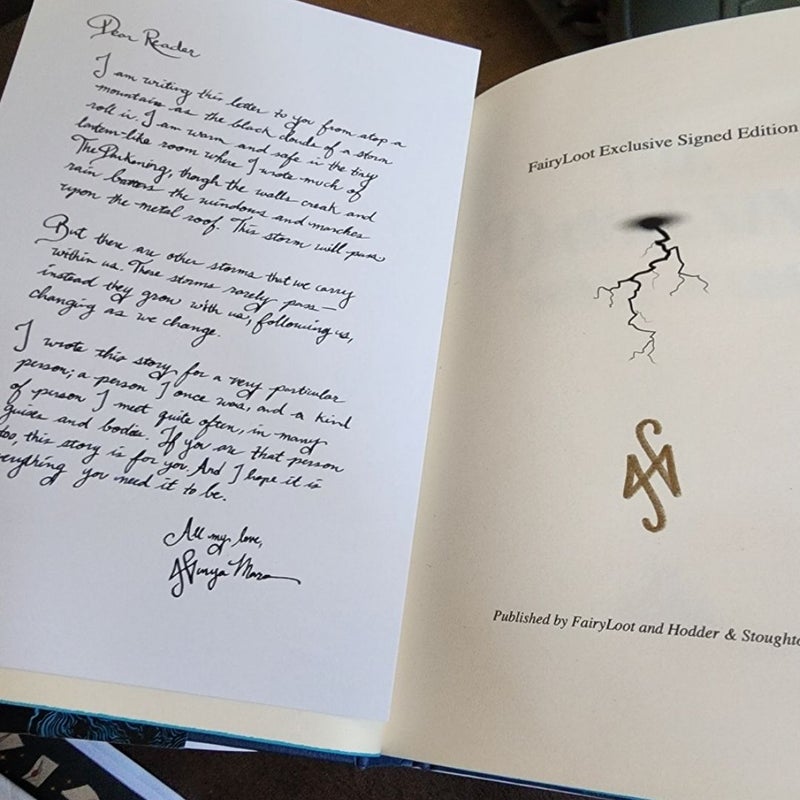 Dear Reader
I am writing this letter to you from atop a
mountain as the black clouds of a storm
roll in. I am warm and safe in the tiny
lantern-like room where I wrote much of
The Darkening, though the walls creak and
rain batters the windows and marches
upon the metal roof. This storm will pass
But there are other storms that we carry
within us. These storms rarely pass—
instead they grow with us, following us,
changing as we change.
I wrote this story for a very particular
person; a person I once was, and a kind
of person I meet quite often, in many
guises and bodies. If you are that person
too, this story is for you. And I hope it is
everything you need it to be.
All my love,
Sunya Mara
FairyLoot Exclusive Signed Edition
Published by FairyLoot and Hodder & Stoughto